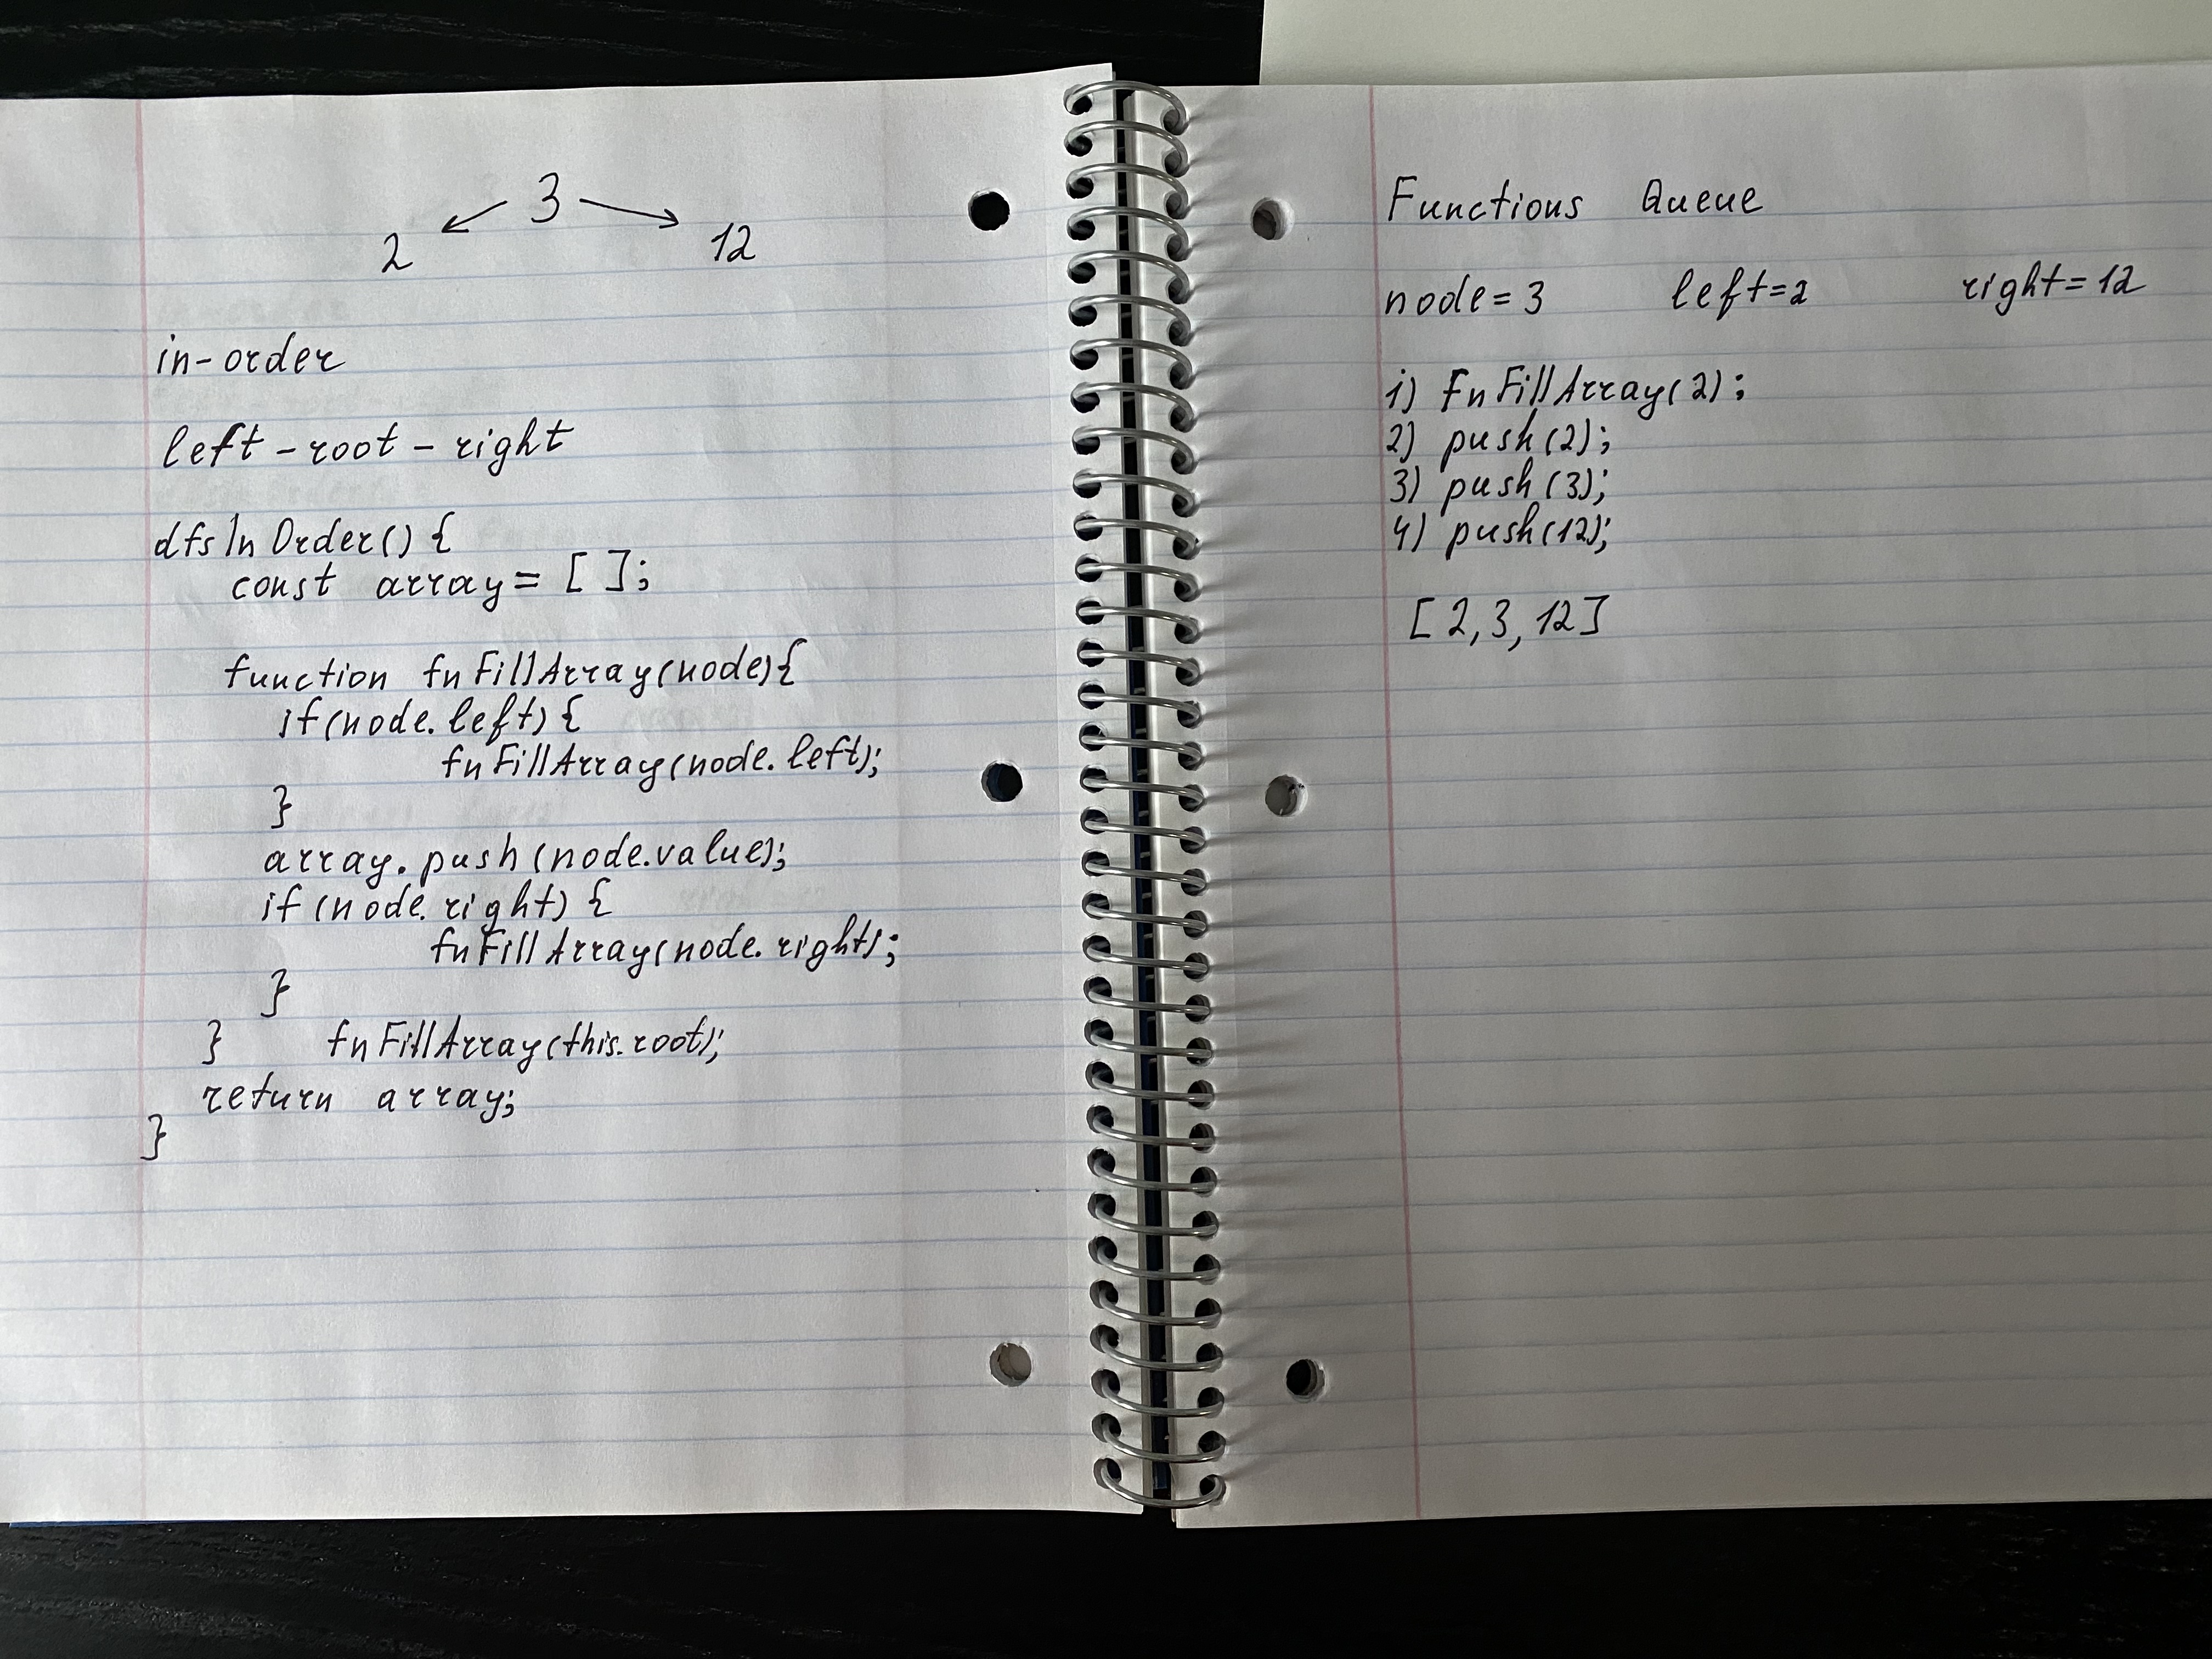 3
2 12
in-order
left - root - right
dfsInOrder() {
const array = [ ];
function fnFillArray(node){
if(node.left) {
fnFillArray(node.left);
}
array.push(node.value);
if(node.right) {
fnFillArray(node.right);
}
} fnFillArray(this.root);
return array;
}
Functions Queue
node = 3 left = 2 right = 12
1) fnFillArray(2);
2) push(2);
3) push(3);
4) push(12);
[2, 3, 12]